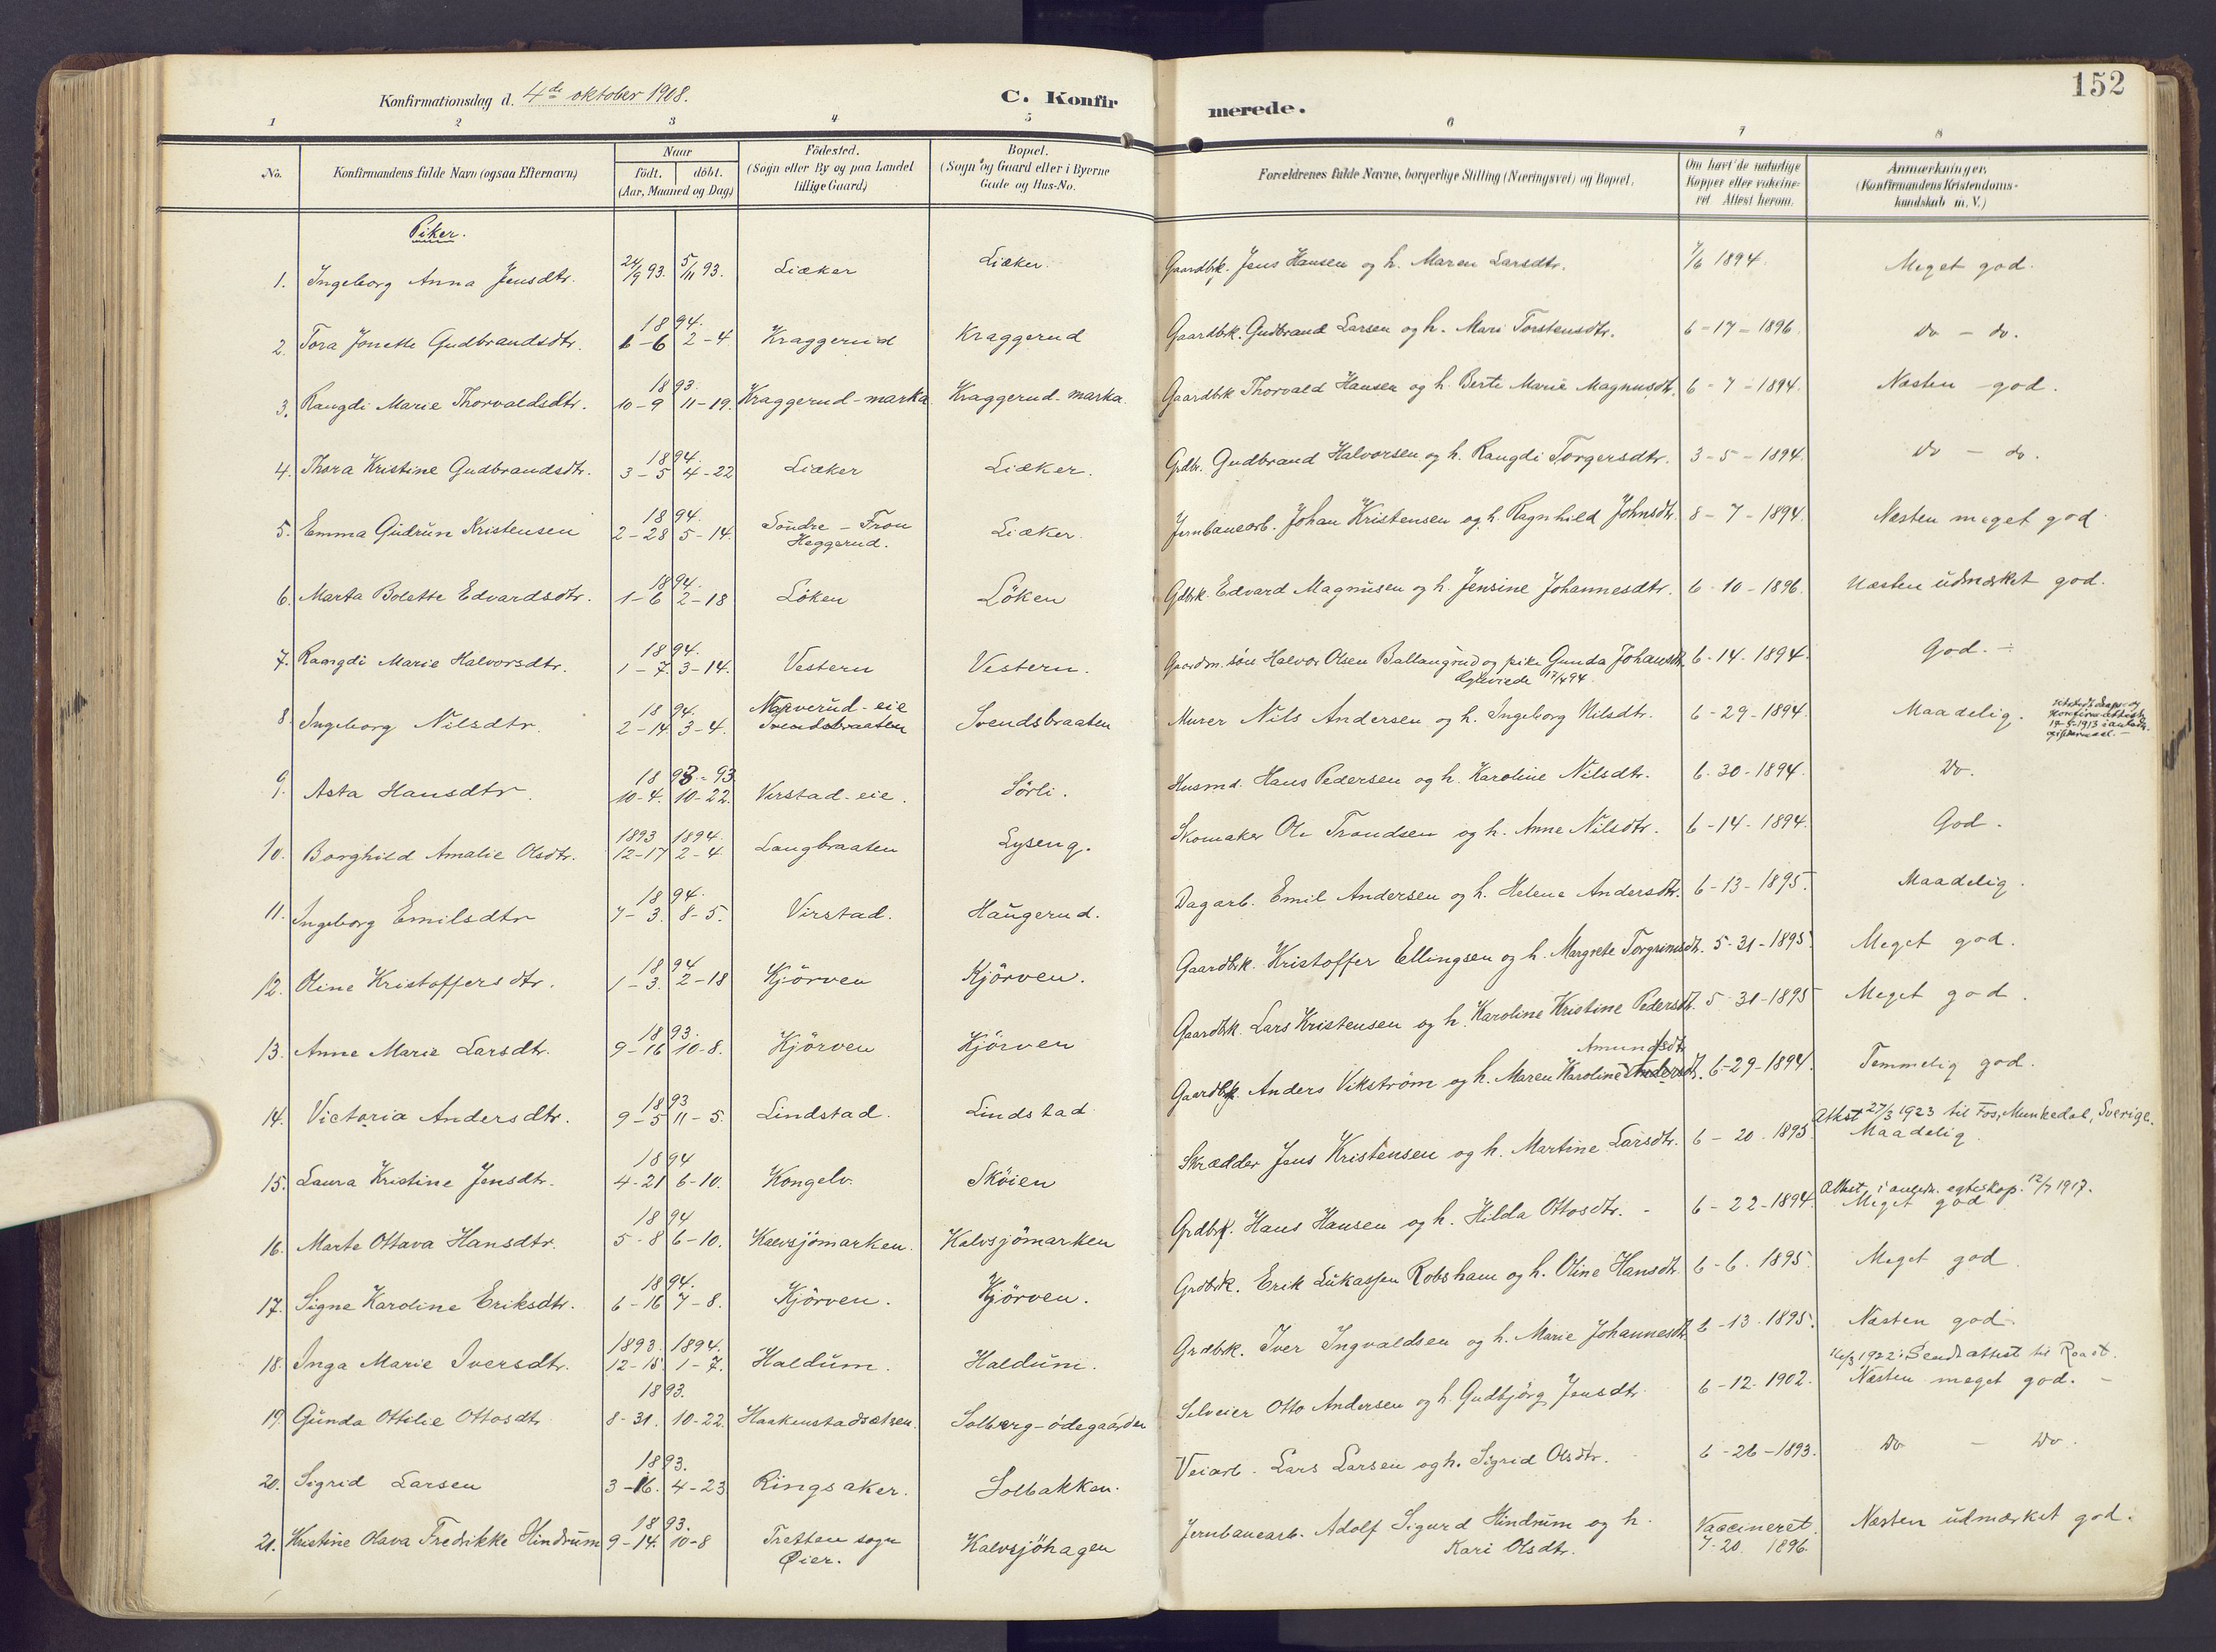 152
Konfirmationsdag d. 4de oktober 1908.
C. Konfirmerede.
1 2 3 4 5 6 7 8
No.
Konfirmandens fulde Navn (ogsaa Efternavn)
Naar
födt. döbt.
(Aar, Maaned og Dag)
Födested.
(Sogn eller By og paa Landet
tillige Gaard)
Bopæl.
(Sogn og Gaard eller i Byerne
Gade og Hus-No.
Forældrenes fulde Navne, borgerlige Stilling (Næringsvei) og Bopæl.
Om havt de naturlige
Kopper eller vakcine-
ret Attest herom.
Anmærkninger.
(Konfirmandens Kristendoms-
kundskab m. V.)
Piker.
1. Ingeborg Anna Jensdtr. 24/9 93. 5/11 93. Liæker Liæker. Gaardbrk. Jens Hansen og h. Maren Larsdtr. 7/6 1894. Meget god.
1894.
2. Tora Jonette Gudbrandsdtr. 1-6 2-4 Kraggerud Kraggerud Gaardbrk. Gudbrand Larsen og h. Mari Torstensdtr. 6-17-1896. do - do.
1893.
3. Rangdi Marie Thorvaldsdtr. 10-9 11-19. Kraggerud-marka Kraggerud-marka. Gaardbrk Thorvald Hansen og h. Berte Marie Magnusdtr. 6-7-1894. Næsten god.
1894.
4. Thora Kristine Gudbrandsdtr. 3-5 4-22 Liæker Liæker. Grdbr. Gudbrand Halvorsen og h. Rangdi Torgersdtr. 3-5-1894. do - do.
1894.
5. Emma Gudrun Kristensen 2-28 5-14. Söndre-Fron Liæker. Jernbanearb. Johan Kristensen og h. Ragnhild Johnsdtr. 8-7-1894. Næsten meget god
Heggerud.
1894.
6. Marta Bolette Edvardsdtr. 1-6 2-18 Löken Löken Gdbrk. Edvard Magnusen og h. Jensine Johannesdtr. 6-10-1896. Næsten udmærket god.
1894.
7. Rangdi Marie Halvorsdtr. 1-7. 3-14. Vestern Vestern. Gaardm. sön Halvor Olsen Ballangrud og pike Gunda Johansdtr. 6-14-1894. God.
Egteviede 12/4 94
1894. Narverud-eie
8. Ingeborg Nilsdtr. 2-14. 3-4. Svendsbraaten Svendsbraaten Murer Nils Andersen og h. Ingeborg Nilsdtr. 6-29-1894. Maadelig.
1893-93.
9. Asta Hansdtr. 10-4. 10-22. Virstad-eie. Sörli. Husmd. Hans Pedersen og h. Karoline Nilsdtr. 6-30-1894. Do.
1893 1894.
10. Borghild Amalie Olsdtr. 12-17 2-4 Langbraaten Lyseng. Skomaker Ole Trondsen og h. Anne Nilsdtr. 6-14-1894. God.
1894.
11. Ingeborg Emilsdtr 7-3. 8-5. Virstad. Haugerud. Dagarb. Emil Andersen og h. Helene Andersdtr. 6-13-1895. Maadelig.
1894
12. Oline Kristoffersdtr. 1-3. 2-18 Kjörven Kjörven. Gaardbrk. Kristoffer Ellingsen og h. Margrete Torgrimsdtr. 5-31-1895. Meget god.
1893.
13. Anne Marie Larsdtr. 9-16 10-8. Kjörven Kjörven Gaardbrk. Lars Kristensen og h. Karoline Kristine Pedersdtr. 5-31-1895 Meget god.
Amundsdtr
1893
14. Victoria Andersdtr. 9-5 11-5. Lindstad. Lindstad Gaardbrk. Anders Vikström og h. Maren Karoline Andersdtr. 6-29-1894. Temmelig god.
Attest 27/3 1923 til Foss, Munkedal, Sverige.
1894
15. Laura Kristine Jensdtr. 4-21 6-10. Kongelv. Sköien Skrædder Jens Kristensen og h. Martine Larsdtr. 6-20-1895 Maadelig.
Attest i anledn. egteskap. 12/7 1917.
1894
16. Marte Ottava Hansdtr. 5-8 6-10. Kalvsjömarken. Kalvsjömarken Grdbrk. Hans Hansen og h. Hilda Ottosdtr. 6-22-1894. Meget god
1894.
17. Signe Karoline Eriksdtr. 6-16 7-8. Kjörven. Kjörven. Grdbrk. Erik Lukassen Robsham og h. Oline Hansdtr. 6-6-1895. Meget god
1893. 1894.
18. Inga Marie Iversdtr. 12-15 1-7. Haldum. Haldum. Grdbrk. Iver Ingvaldsen og h. Marie Johannesdtr. 6-13-1895. Næsten god.
1922. Sendt attest til Roa st.
1893.
19. Gunda Ottilie Ottosdtr. 8-31. 10-22. Haakenstadsætren. Solberg-ödegaarden Selveier Otto Andersen og h. Gudbjörg Jensdtr. 6-12-1902. Næsten meget god.
1893.
20. Sigrid Larsen 3-16. 4-23 Ringsaker. Solbakken. Veiarb. Lars Larsen og h. Sigrid Olsdtr. 6-26-1893. do - do.
1893.
21. Kristine Olava Fredrikke Hindrum 9-14. 10-8 Tretten sogn Kalvsjöhagen Jernbanearb. Adolf Sigurd Hindrum og h. Vaccineret. Næsten udmærket god.
Øier. Kari Olsdtr. 7-20. 1896.